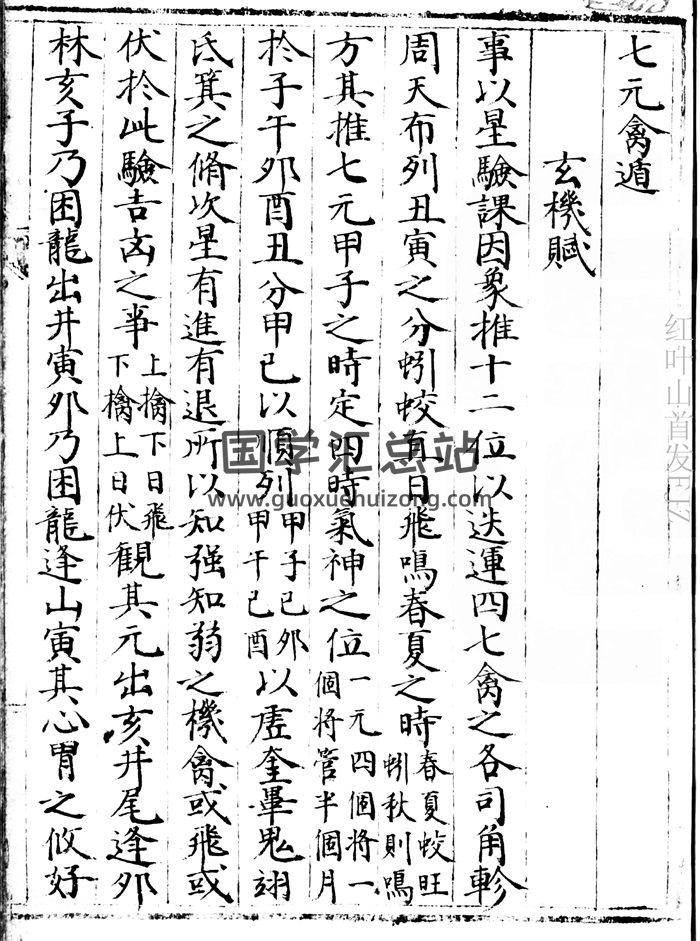 七元禽遁
玄機賦
事以星驗課因象推十二位以迭運四七禽之各司角軫
周天布列丑寅之分蚓蛟直日飛鳴春夏之時春夏蛟旺蚓秋則鳴
方其推七元甲子之時定四時氣神之位一元四個將一個将管半個月
於子午卯酉丑分甲已以順列甲子已卯甲午已酉以虚奎畢鬼翊
氐箕之脩次星有進有退所以知强知弱之機禽或飛或
伏於此驗吉凶之事上擒下日飛下擒上日伏觀其元出亥井尾逢卯
林亥子乃困龍出井寅卯乃困龍逢山寅其心胃之攸好
国学汇总站
www.guoxuehuizong.com
红叶山首发